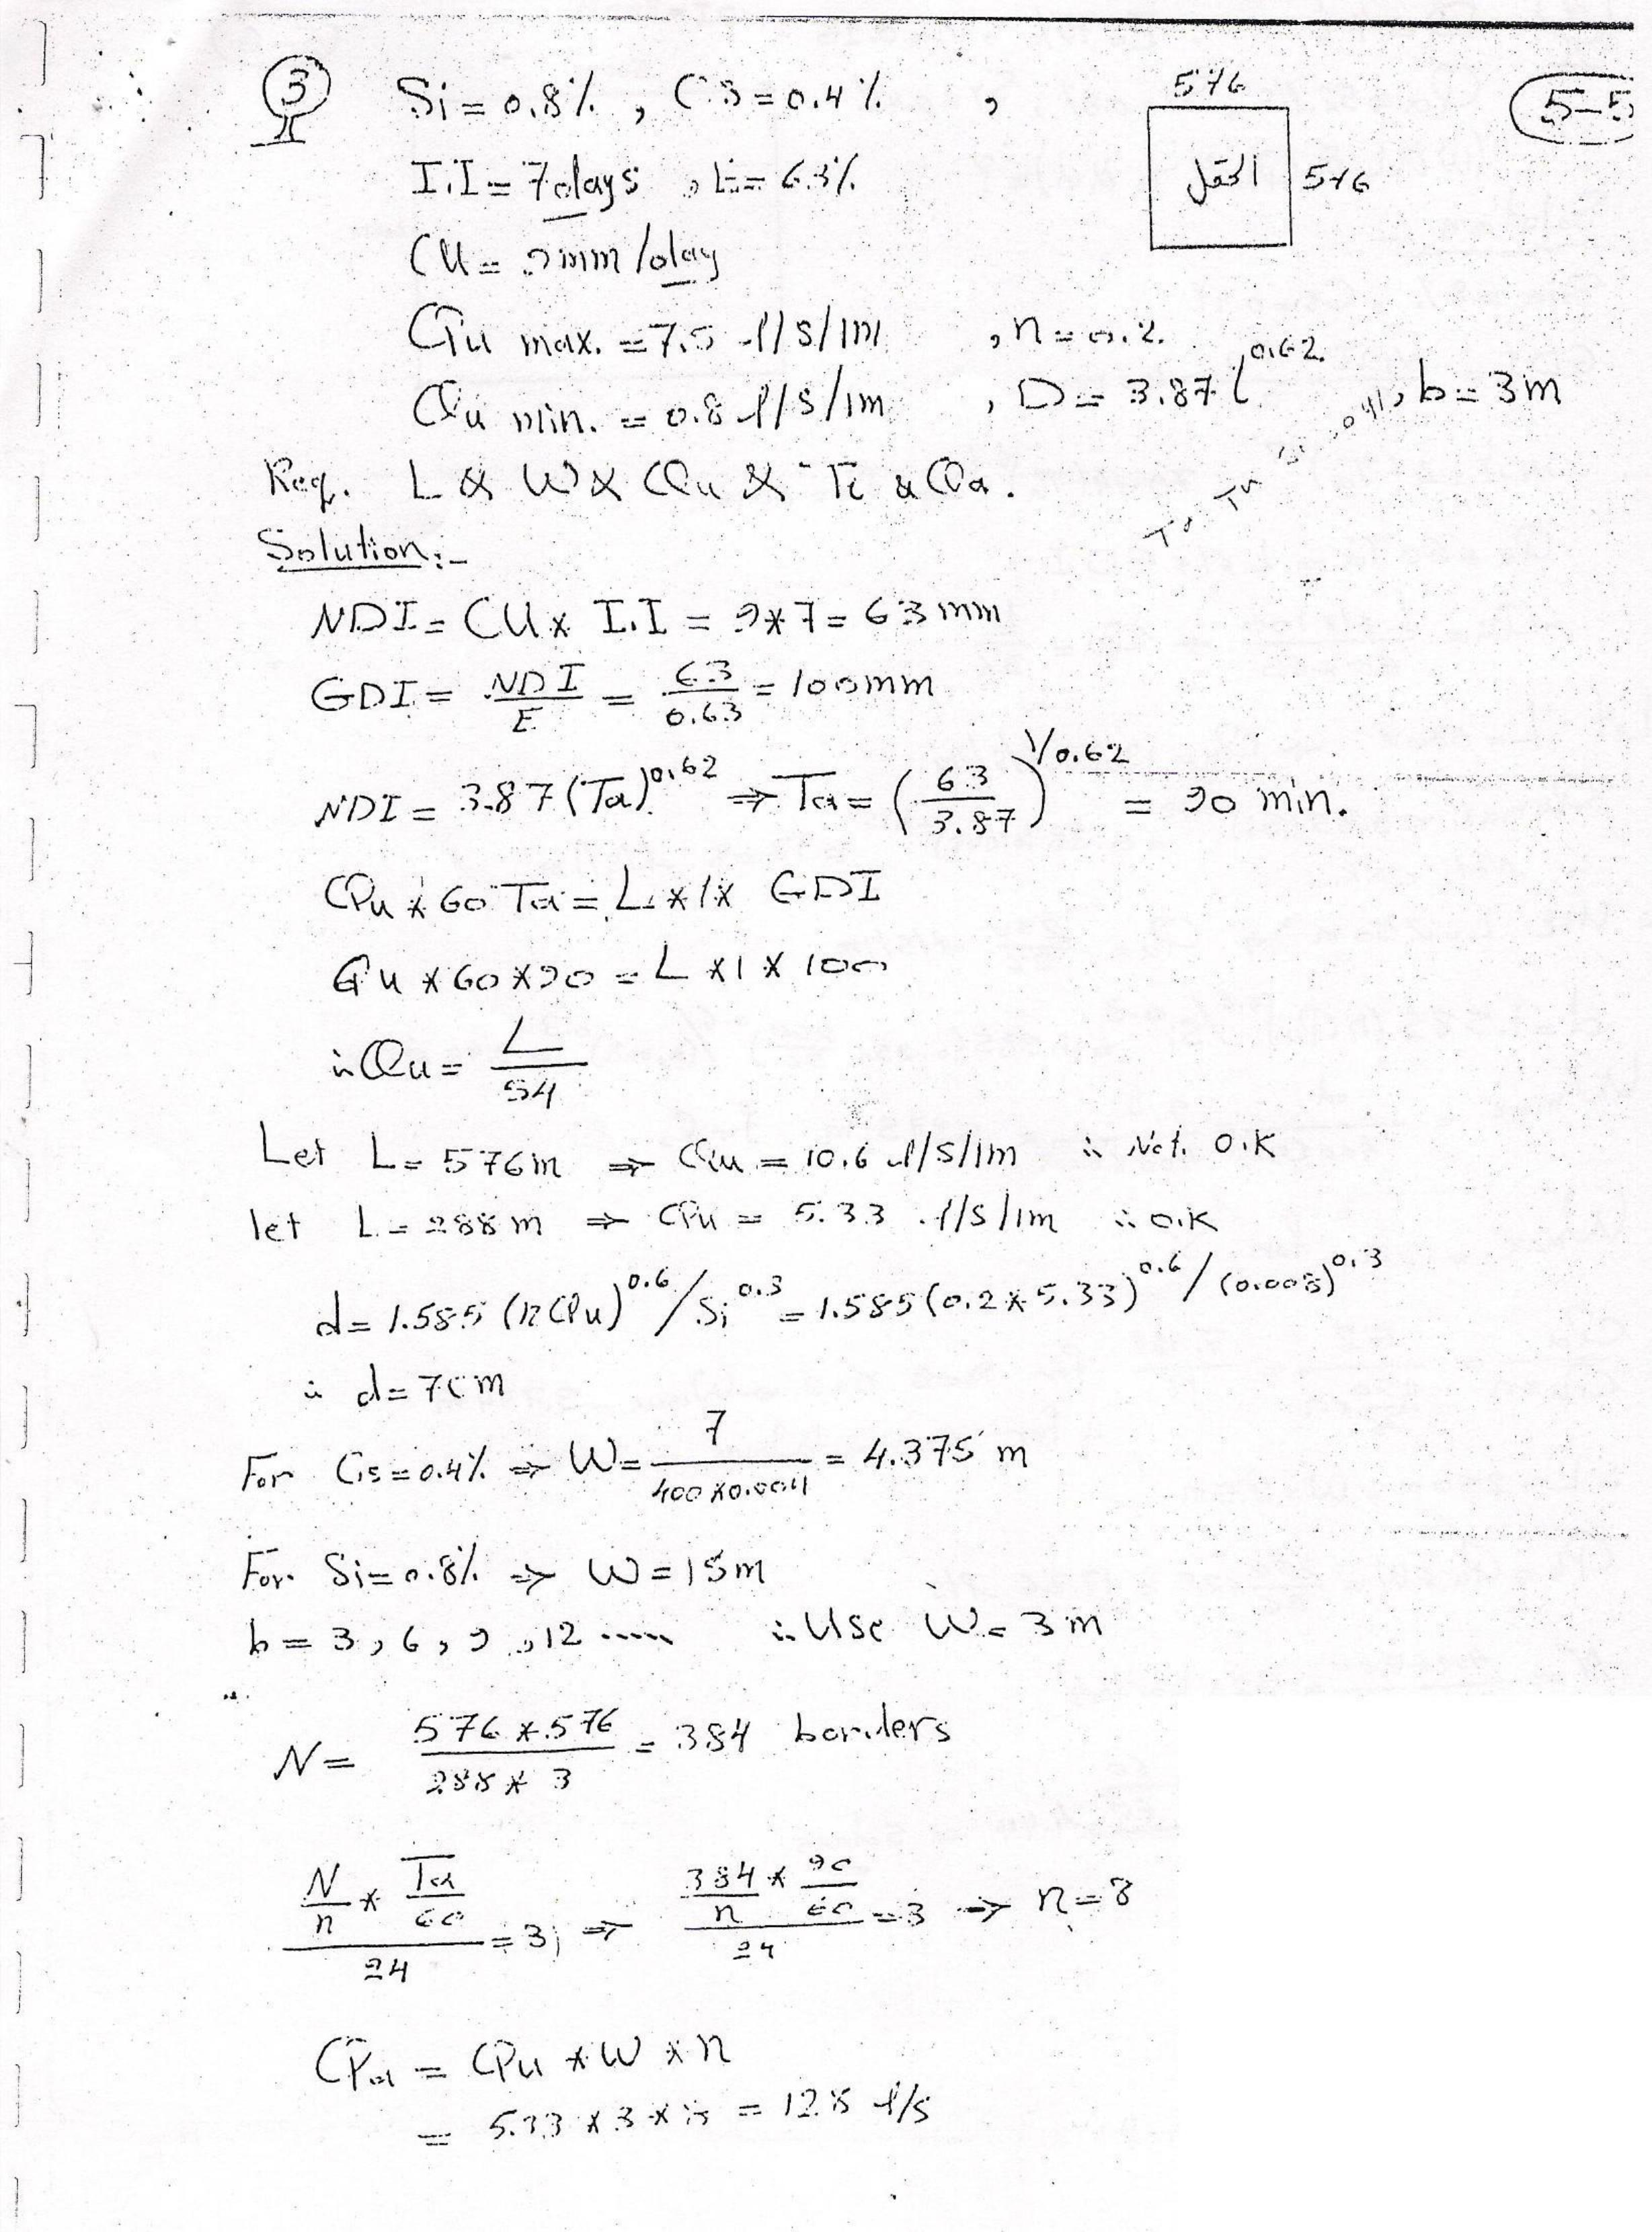 3 Si = 0.8% , CS = 0.4% ,
576
5-5
I.I = 7 days , E = 63%
الحقل 576
CU = 9 mm/day
Qu max. = 7.5 l/s/1m , n = 0.2
Qu min. = 0.8 l/s/1m , D = 3.87 t^0.62 , b = 3m
Req. L & W & Qu & Ta & Qa.
Solution:-
NDI = CU * I.I = 9*7 = 63 mm
GDI = NDI/E = 63/0.63 = 100mm
NDI = 3.87 (Ta)^0.62 ⇒ Ta = (63/3.87)^1/0.62 = 90 min.
Qu * 60 Ta = L * 1 * GDI
Qu * 60 * 90 = L * 1 * 100
∴ Qu = L/54
Let L = 576m ⇒ Qu = 10.6 l/s/1m ∴ Not. O.K
let L = 288 m ⇒ Qu = 5.33 l/s/1m ∴ O.K
d = 1.585 (n Qu)^0.6 / Si^0.3 = 1.585 (0.2 * 5.33)^0.6 / (0.008)^0.3
∴ d = 7cm
For CS = 0.4% ⇒ W = 7/(400*0.004) = 4.375 m
For Si = 0.8% ⇒ W = 15m
b = 3, 6, 9, 12 ..... ∴ Use W = 3 m
N = (576*576)/(288*3) = 384 borders
(N/n * Ta/60)/24 = 3 ⇒ (384/n * 90/60)/24 = 3 ⇒ n = 8
Qa = Qu * W * n
= 5.33 * 3 * 8 = 128 l/s